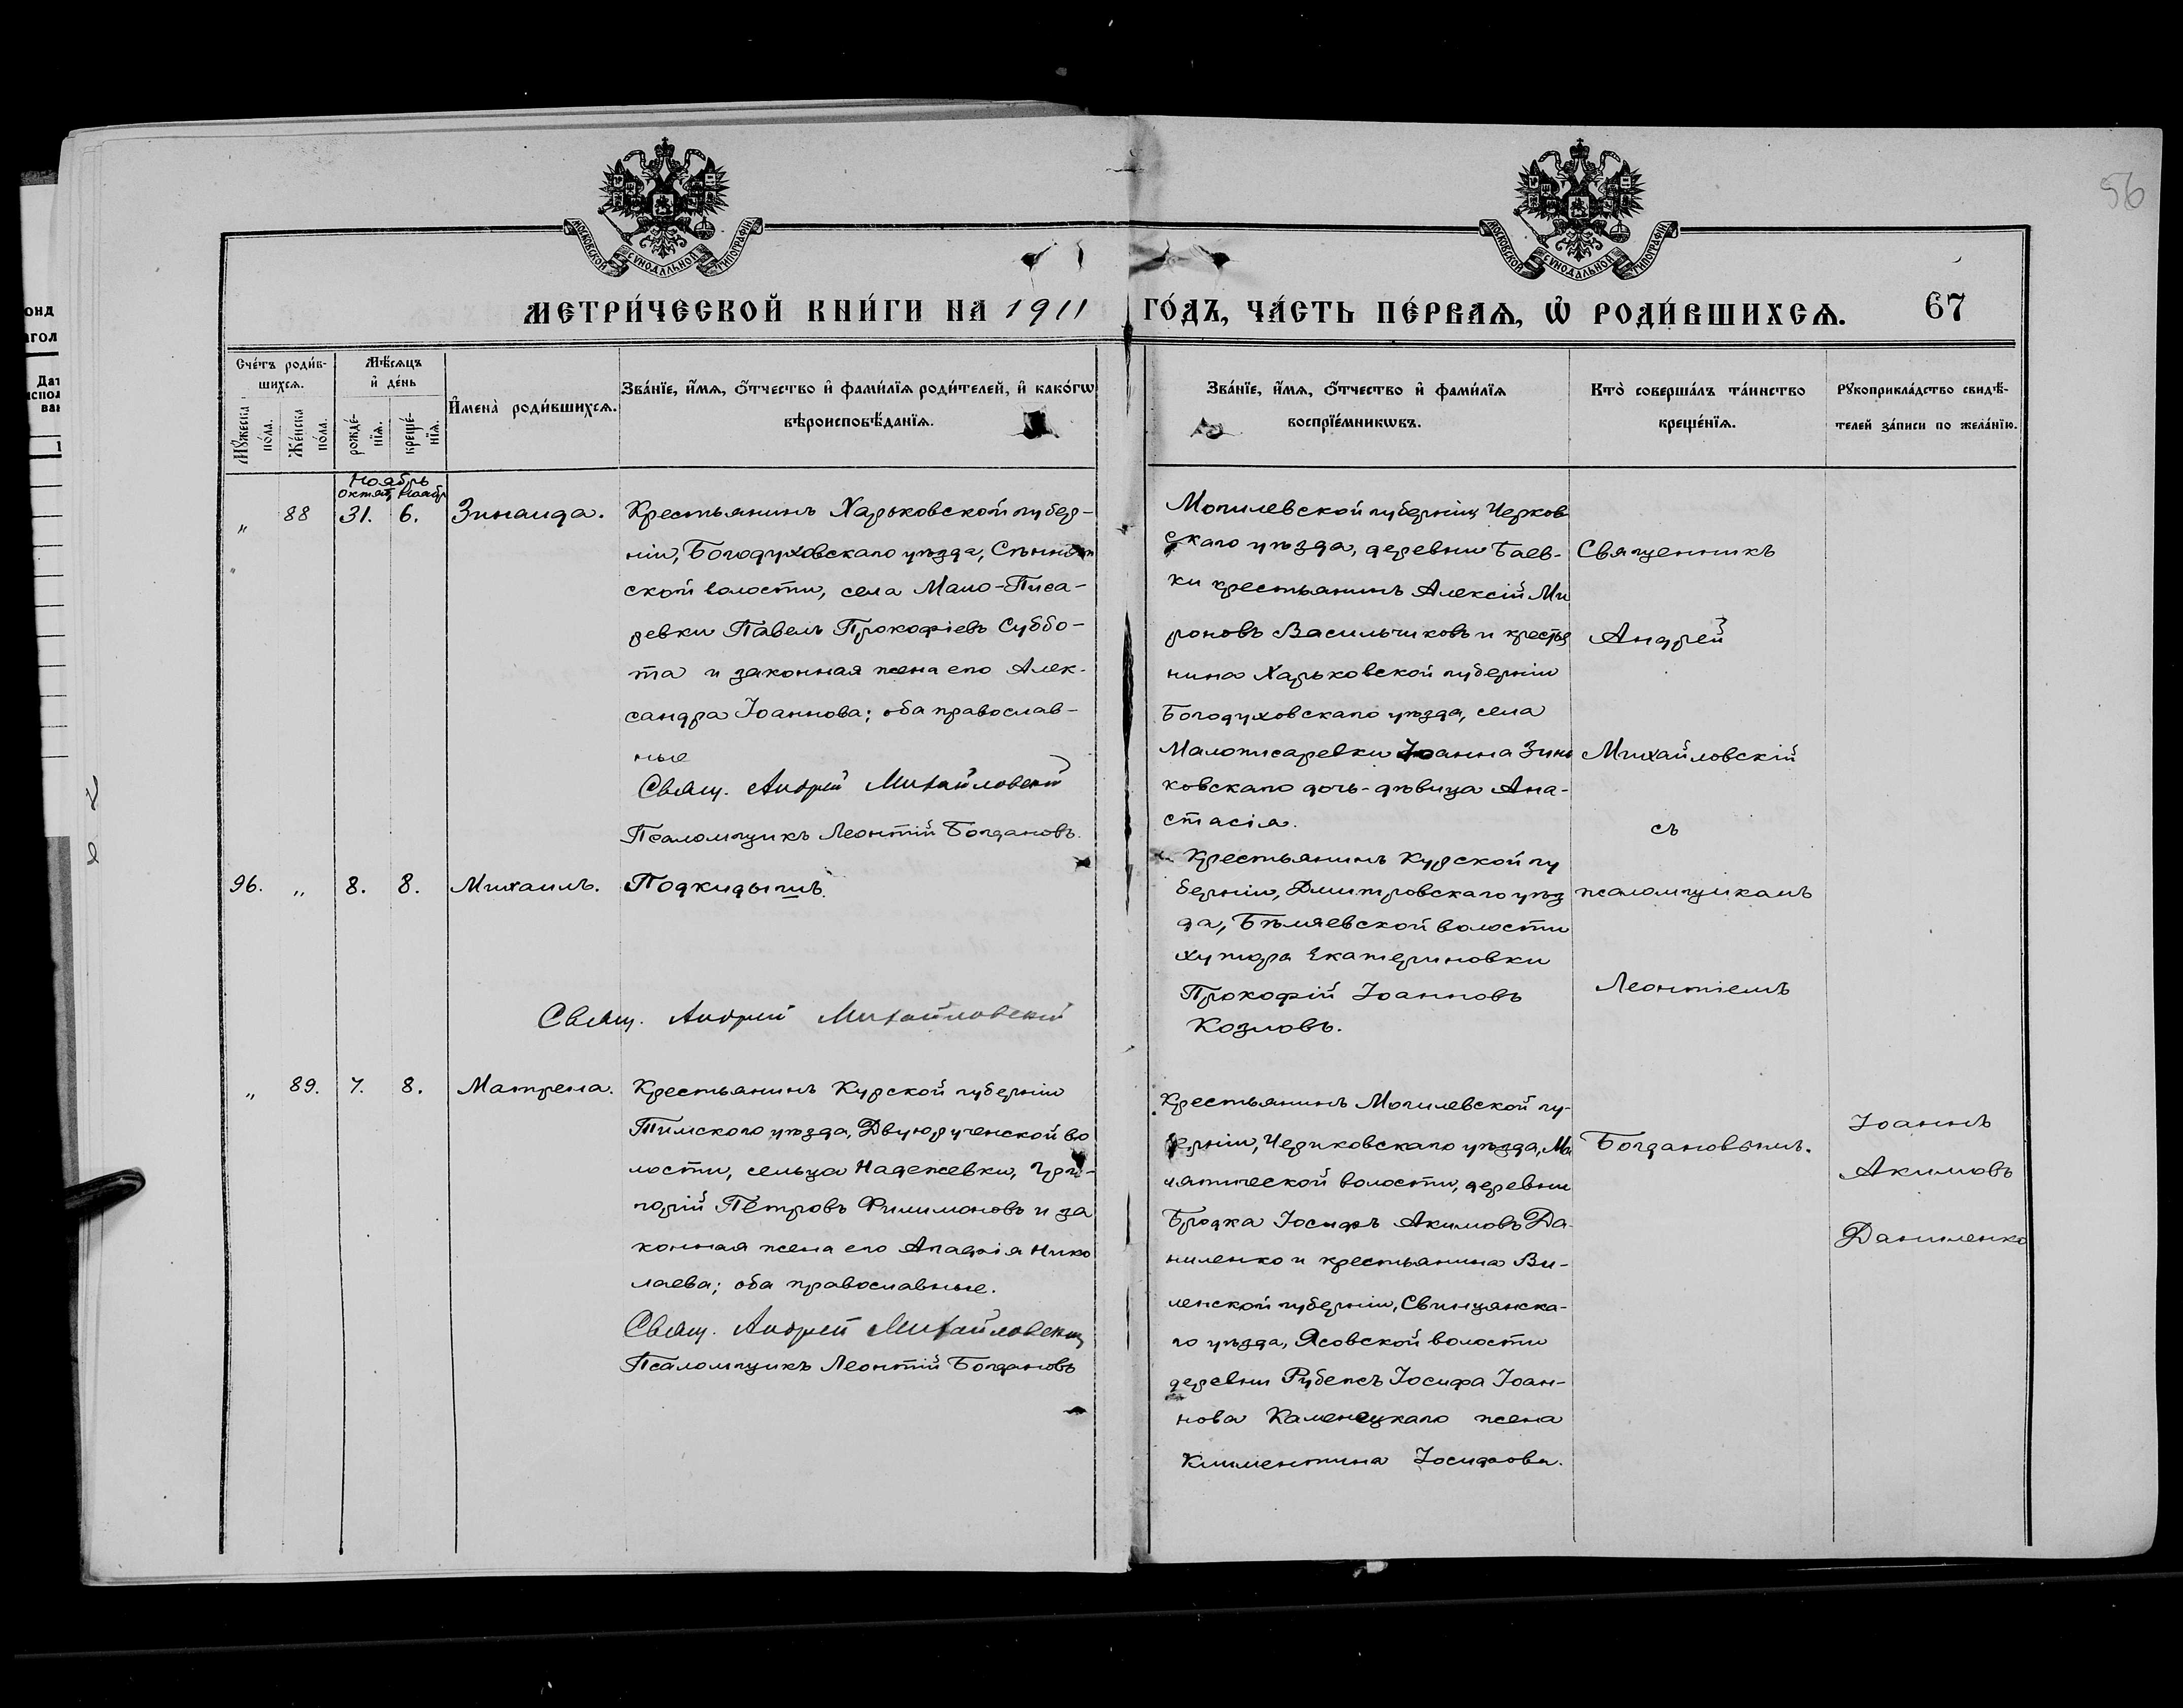 56
МОСКОВСКОЙ СѴНОДАЛЬНОЙ ТИПОГРАФІИ
МОСКОВСКОЙ СѴНОДАЛЬНОЙ ТИПОГРАФІИ
МЕТРИ́ЧЕСКОЙ КНИ́ГИ НА 1911 ГО́ДЪ, ЧА́СТЬ ПЕ́РВАѦ, Ѡ҆ РОДИ́ВШИХСѦ. 67
Сче́тъ роди́в-
шихсѧ.
Мꙋ́жеска по́ла.
Же́нска по́ла.
Мѣ́сѧцъ
и҆ де́нь
рожде́-
нїѧ.
креще́-
нїѧ.
И҆мена̀ роди́вшихсѧ.
Зва́нїе, и҆́мѧ, ѻ҆́тчество и҆ фами́лїѧ роди́телей, и҆ како́гѡ
вѣроисповѣ́данїѧ.
Зва́нїе, и҆́мѧ, ѻ҆́тчество и҆ фами́лїѧ
воспрїе́мникѡвъ.
Кто̀ соверша́лъ та́инство
креще́нїѧ.
Рꙋкоприкла́дство свидѣ́-
телей за́писи по жела́нїю.
Ноябрь
Октяб. Ноябр
„ 88 31. 6. Зинаида.
Крестьянинъ Харьковской губер-
ніи, Богодуховскаго уѣзда,
ской волости, села Мало-Писа-
ревки Павелъ Прокофіевъ Суббо-
та и законная жена его Алек-
сандра Іоаннова; оба православ-
ные
Свящ. Андрей Михайловскій
Псаломщикъ Леонтій Богдановъ.
Могилевской губерніи Черков
скаго уѣзда, деревни Баев-
ки крестьянинъ Алексій Ми
роновъ Васильчиковъ и крестья
нина Харьковской губерніи
Богодуховскаго уѣзда, села
Малописаревки Іоанна Зинь
ковскаго дочь-дѣвица Ана-
стасія.
Священникъ
Андрей
Михайловскій
съ
псаломщикомъ
Леонтіемъ
Богдановымъ.
96. „ 8. 8. Михаилъ. Подкидышъ.
Свящ. Андрей Михайловскій
Крестьянинъ Курской гу
берніи, Дмитровскаго уѣз
да, Бѣляевской волости
хутора Екатериновки
Прокофій Іоанновъ
Козловъ.
„ 89. 7. 8. Матрена.
Крестьянинъ Курской губерніи
Тимскаго уѣзда, Двулученской во
лости, сельца Надежевки, Гри-
горій Петровъ Филимоновъ и за
конная жена его Агафія Нико
лаева; оба православные.
Свящ. Андрей Михайловскій
Псаломщикъ Леонтій Богдановъ
Крестьянинъ Могилевской гу-
берніи, Чериковскаго уѣзда, Ма
лятической волости, деревни
Бродка Іосифъ Акимовъ Да-
ниленко и крестьянина Ви-
ленской губерніи, Свинцянска-
го уѣзда, Ясовской волости
деревни Рубежъ Іосифа Іоан-
нова Каменецкаго жена
Климентина Іосифова.
Іоаннъ
Акимовъ
Даниленко